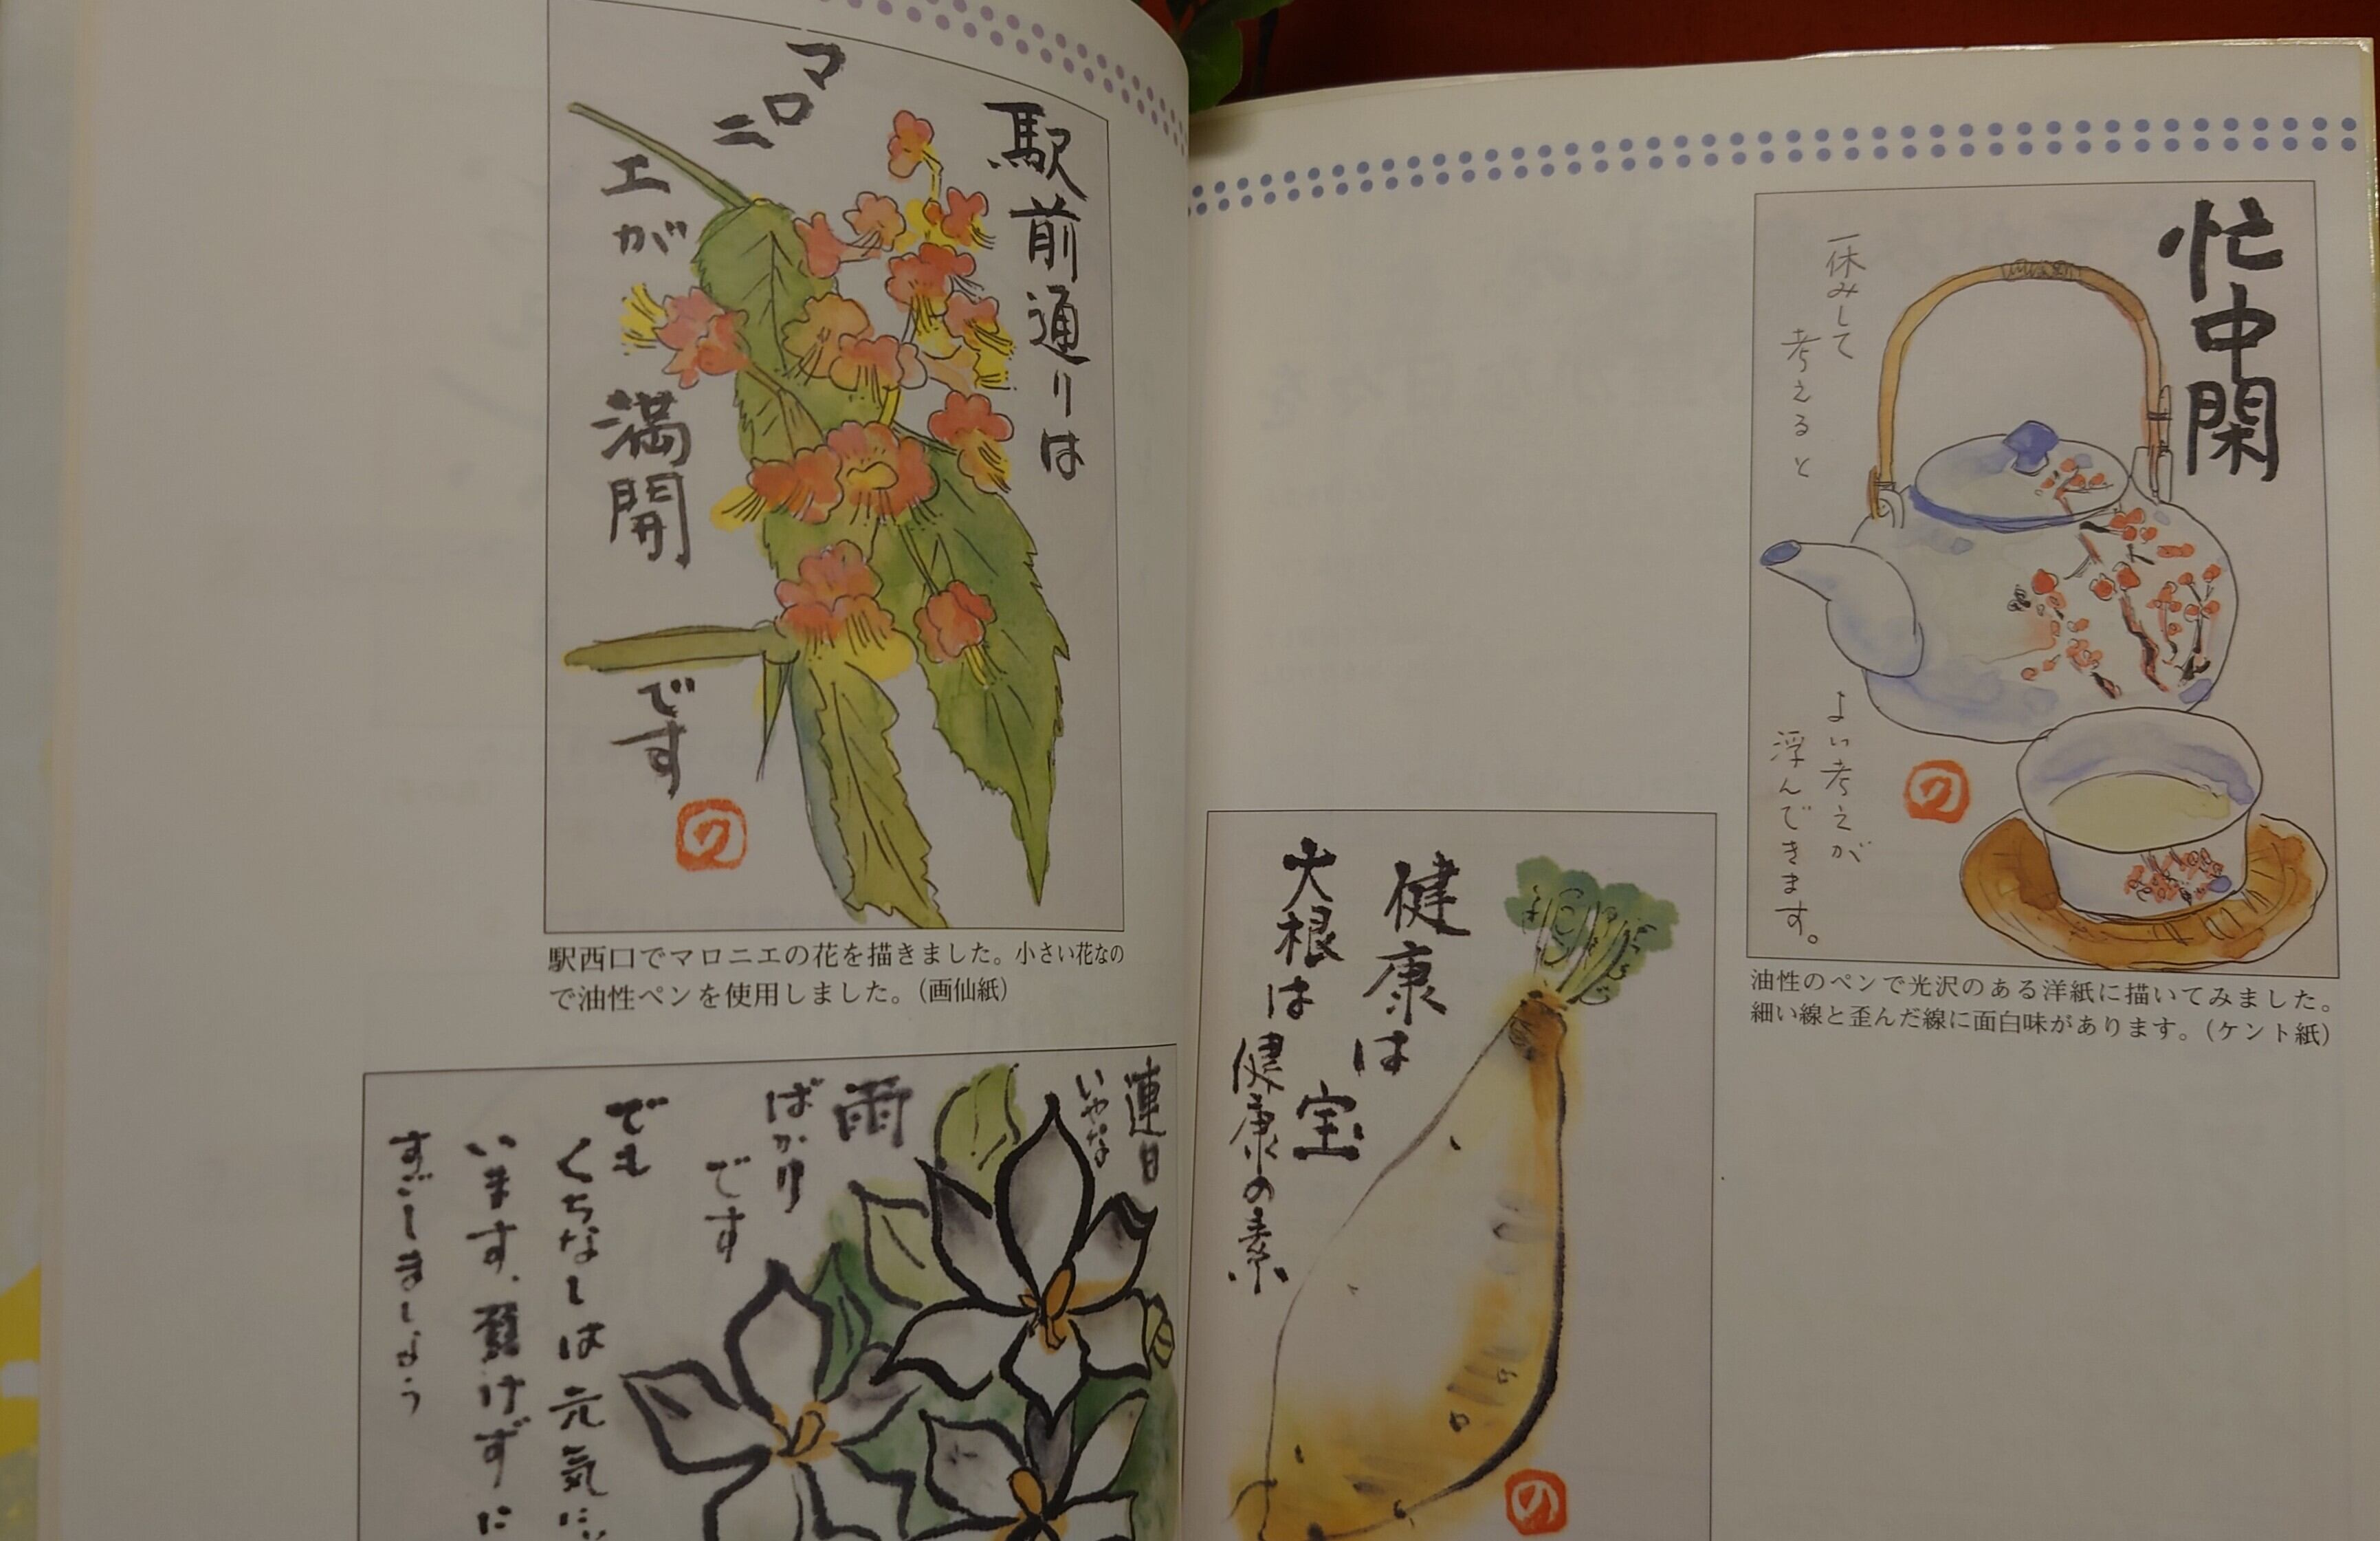 駅前通りは
マロニ
エが
満開
です
の
駅西口でマロニエの花を描きました。小さい花なの
で油性ペンを使用しました。（画仙紙）
連日
いやな
雨
ばかり
です
でも
くちなしは元気に
います。負けずに
すごしましょう
忙中閑
一休みして
考えると
よい考えが
浮んできます。
の
油性のペンで光沢のある洋紙に描いてみました。
細い線と歪んだ線に面白味があります。（ケント紙）
健康は
宝
大根は
健康の素
の